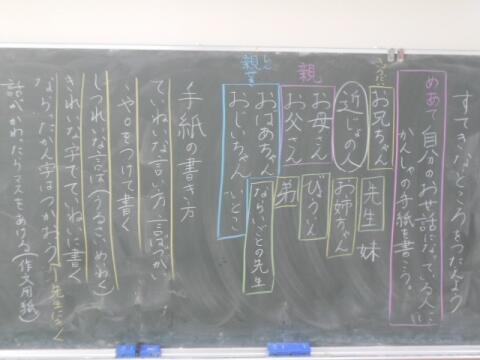 すてきなところをつたえよう
めあて 自分のおせ話になっている人に
かんしゃの手紙を書こう。
お兄ちゃん
先生
妹
近じょの人
お姉ちゃん
親
お母さん
お父さん
弟
おばあちゃん
おじいちゃん
ならいごとの先生
いとこ
手紙の書き方
ていねいな言い方、言ばづかい
、や。をつけて書く
しつれいな言ば(うるさい、めいわく)
きれいな字でていねいに書く
ならったかん字はつかおう
話がかわったら一マスをあける(作文用紙)